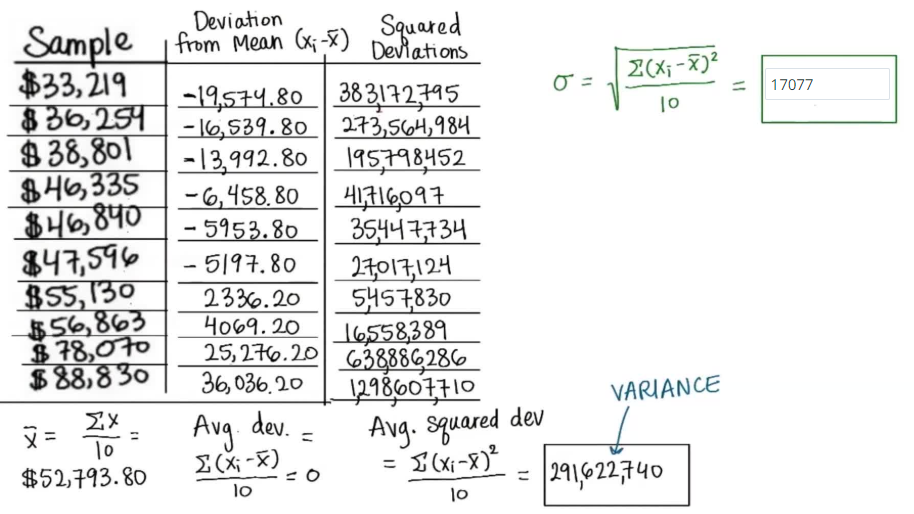 Sample | Deviation from Mean (xᵢ-x̄) | Squared Deviations
$33,219 | -19,574.80 | 383,172,795
$36,254 | -16,539.80 | 273,564,984
$38,801 | -13,992.80 | 195,798,452
$46,335 | -6,458.80 | 41,716,097
$46,840 | -5953.80 | 35,447,734
$47,596 | -5197.80 | 27,017,124
$55,130 | 2336.20 | 5,457,830
$56,863 | 4069.20 | 16,558,389
$78,070 | 25,276.20 | 638,886,286
$88,830 | 36,036.20 | 1,298,607,710
x̄ = Σx/10 =
$52,793.80
Avg. dev. =
Σ(xᵢ-x̄)/10 = 0
Avg. squared dev
= Σ(xᵢ-x̄)²/10 = 291,622,740
VARIANCE
σ = √(Σ(xᵢ-x̄)²/10) = 17077